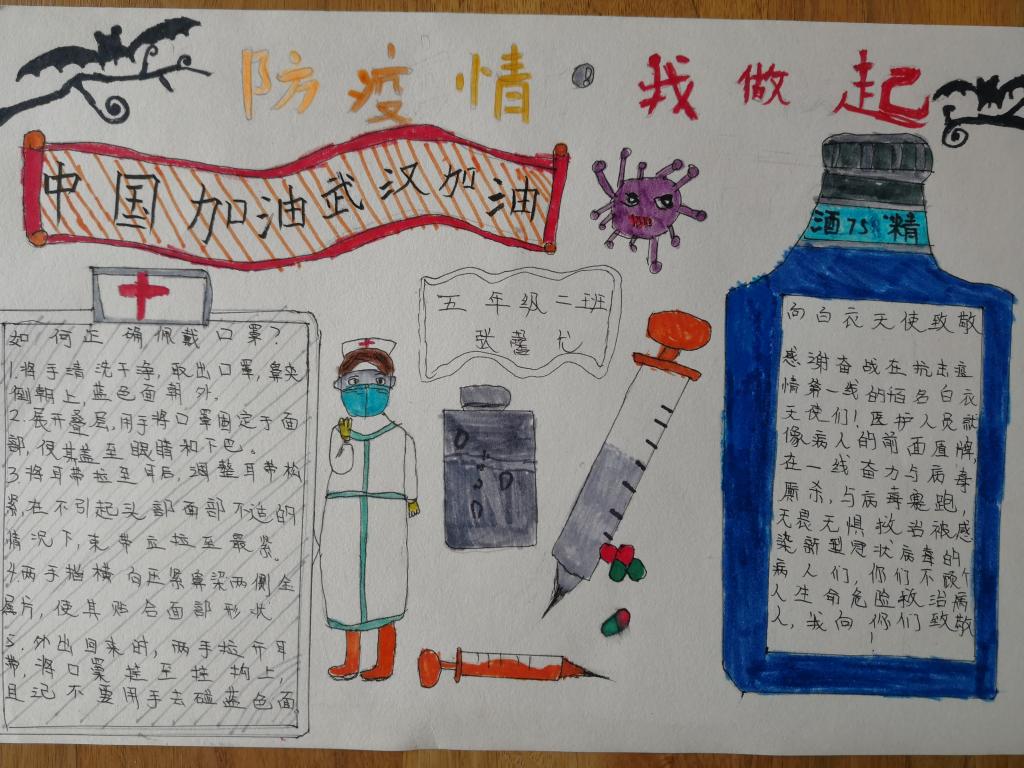 防疫情·我做起
中国加油武汉加油
酒75%精
五年级二班
张馨
如何正确佩戴口罩？
1.将手清洗干净，取出口罩，鼻夹
侧朝上，蓝色面朝外。
2.展开叠层，用手将口罩固定于面
部，使其盖至眼睛和下巴。
3.将耳带拉至耳后，调整耳带松
紧，在不引起头部面部不适的
情况下，束带应拉至最紧。
4.两手指横向压紧鼻梁两侧金
属片，使其贴合面部形状
5.外出回来时，两手拉开耳
带，将口罩挂至挂钩上，
且记不要用手去碰蓝色面
向白衣天使致敬
感谢奋战在抗击疫
情第一线的的名白衣
天使们！医护人员就
像病人的前面盾牌，
在一线奋力与病毒
厮杀，与病毒赛跑，
无畏无惧救治被感
染新型冠状病毒的
病人们，你们不顾个
人生命危险救治病
人，我向你们致敬
！